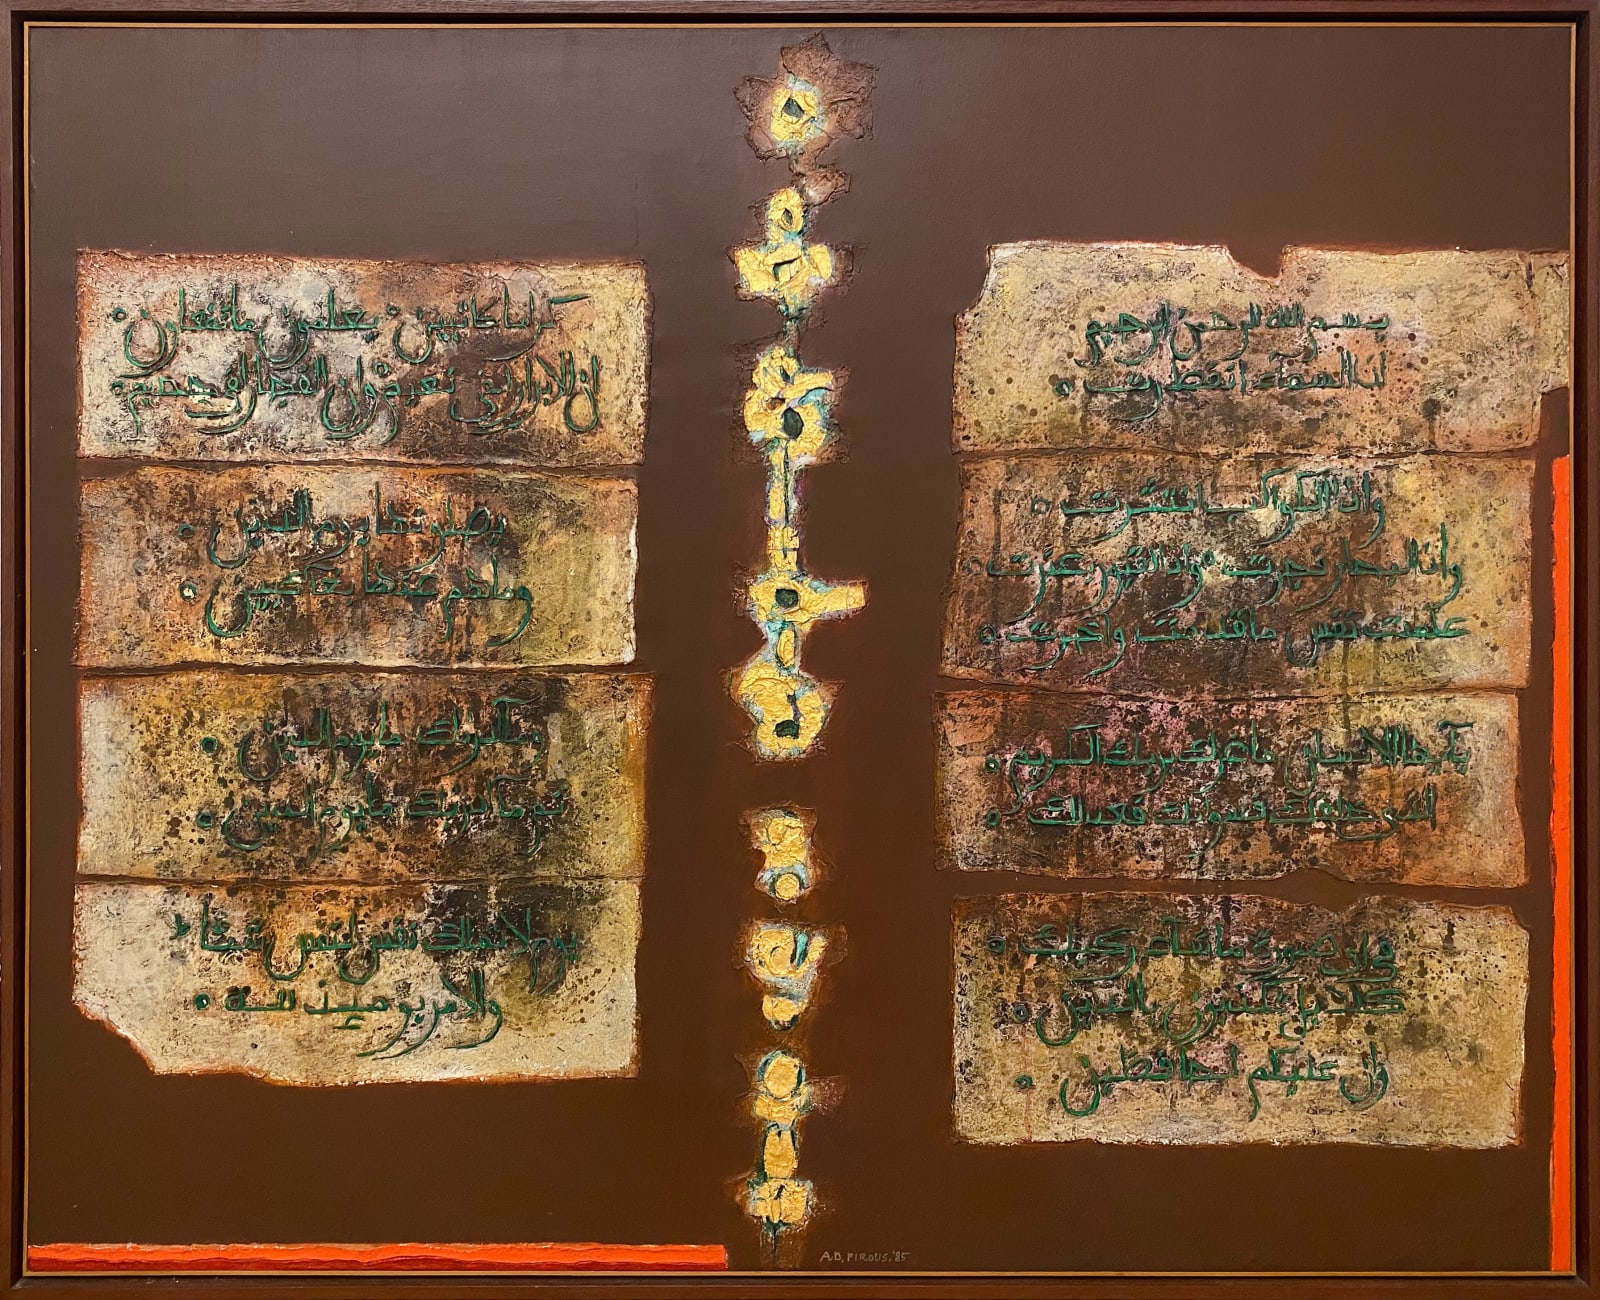 بسم الله الرحمن الرحيم
اذا السمآء انفطرت ه
واذا الكواكب انتثرت ه
واذا البحار فجرت ه واذا القبور بعثرت ه
علمت نفس ما قدمت واخرت ه
يآيها الانسان ما غرك بربك الكريم ه
الذي خلقك فسوىك فعدلك ه
في اي صورة ما شآء ركبك ه
كلا بل تكذبون بالدين ه
وان عليكم لحافظين ه
كراما كاتبين ه يعلمون ما تفعلون ه
ان الابرار لفي نعيم ه وان الفجار لفي جحيم ه
يصلونها يوم الدين ه
وما هم عنها بغائبين ه
ومآ ادرىك ما يوم الدين ه
ثم مآ ادرىك ما يوم الدين ه
يوم لا تملك نفس لنفس شيئا ط
والامر يومئذ لله ه
A.D. PIROUS. '85